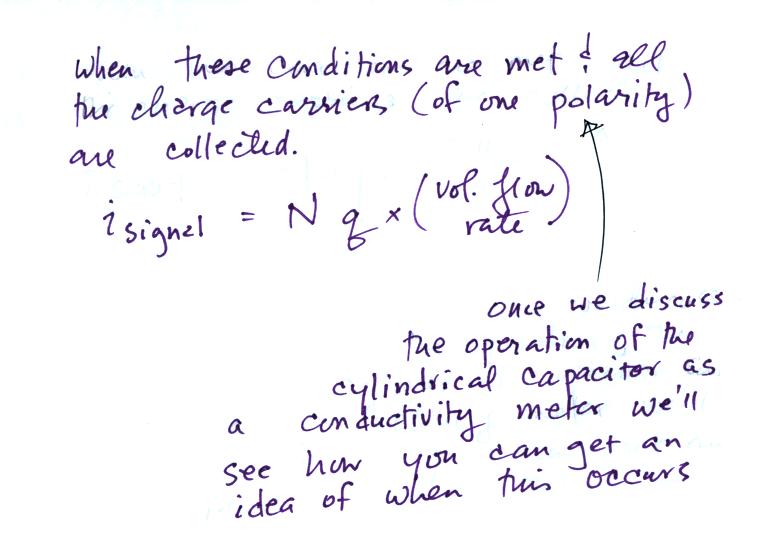 when these conditions are met & all
the charge carriers (of one polarity)
are collected.
i signal = N q × (vol. flow rate)
once we discuss
the operation of the
cylindrical capacitor as
a conductivity meter we'll
see how you can get an
idea of when this occurs